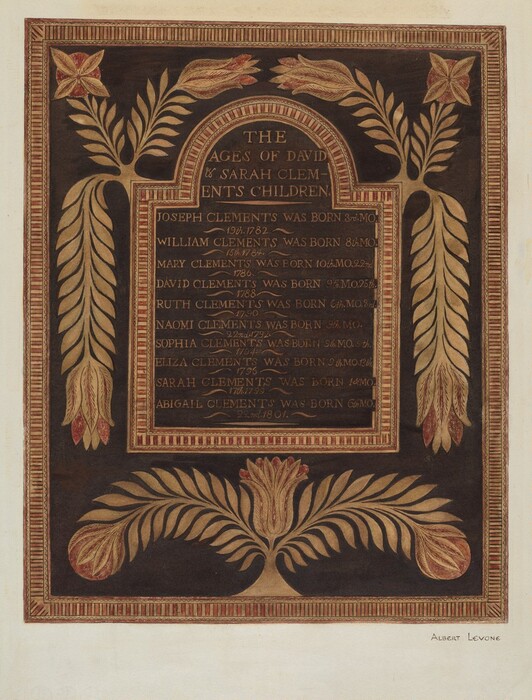 THE
AGES OF DAVID
& SARAH CLEM-
ENTS CHILDREN
JOSEPH CLEMENTS WAS BORN 3rd MO.
19th. 1782
WILLIAM CLEMENTS WAS BORN 8th MO.
1784
MARY CLEMENTS WAS BORN 10th MO. 
1786
DAVID CLEMENTS WAS BORN MO.
1788
RUTH CLEMENTS WAS BORN MO.
1790
NAOMI CLEMENTS WAS BORN MO.
22nd 1792
SOPHIA CLEMENTS WAS BORN MO.
ELIZA CLEMENTS WAS BORN MO.
1796
SARAH CLEMENTS WAS BORN MO.
ABIGAIL CLEMENTS WAS BORN MO.
1801.
ALBERT LEVONE